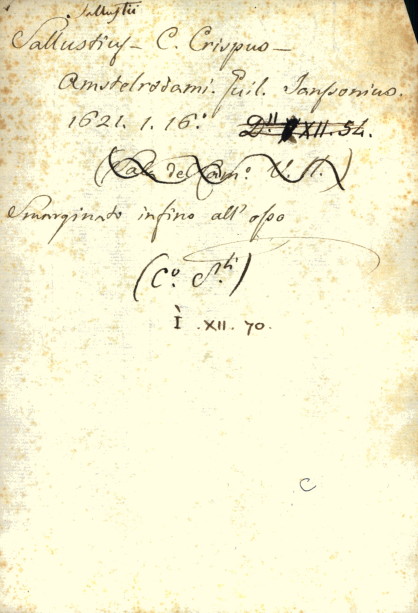 Sallustii
Sallustius C. Crispus
Amstelrodami. Guil. Janssonius.
1621. 1. 16.º D.ii XII. 54.
(Sala del Cam.º V. S.)
Smarginato infino all' osso
(C.º S.ti)
I .XII. 70.
C